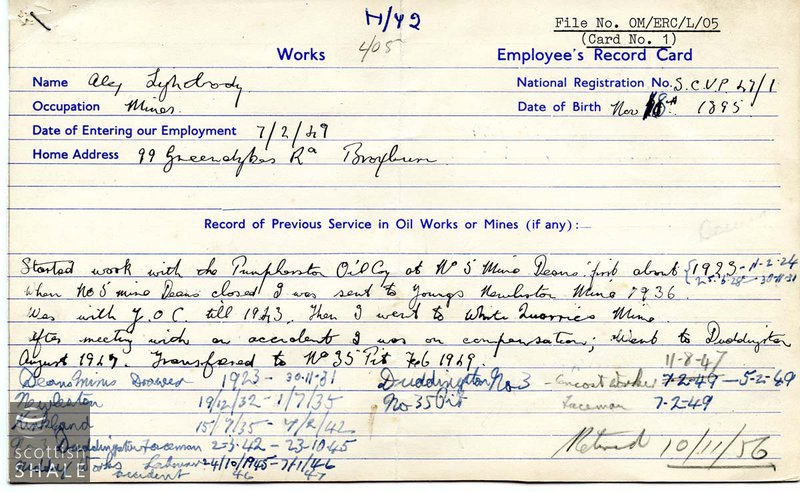 H/42
File No. OM/ERC/L/05
(Card No. 1)
405
Works
Employee's Record Card
Name Alex Lightbody
National Registration No. S.C.V.P. 47/1
Occupation Miner.
Date of Birth Nov 18th. 1895.
Date of Entering our Employment 7/2/49
Home Address 99 Greendykes Rd Broxburn
Record of Previous Service in Oil Works or Mines (if any):—
Started work with the Pumpherston Oil Coy at No 5 Mine Deans. first about 1923 - 11-2-24
25-5-25 - 30-11-31
When No 5 mine Deans closed I was sent to Youngs Newliston Mine 1936.
Was with Y.O.C. till 1943. Then I went to White Quarries Mine.
After meeting with an accident I was on compensation; Went to Duddingston
August 1947. Transfered to No 35 Pit Feb 1949.
11-8-47
Deans Mines Drawer 1923 - 30-11-31 Duddingston No. 3 - Oncost Worker 7-2-49 - 5-2-49
Newliston 19/12/32 - 1/7/35 No 35 Pit Faceman 7-2-49
15/7/35 - 7/2/42
Duddingston Faceman 2-3-42 - 23-10-45
Works Labourer 24/10/1945 - 7/1/46
accident 46 47
Retired 10/11/56
scottish
SHALE